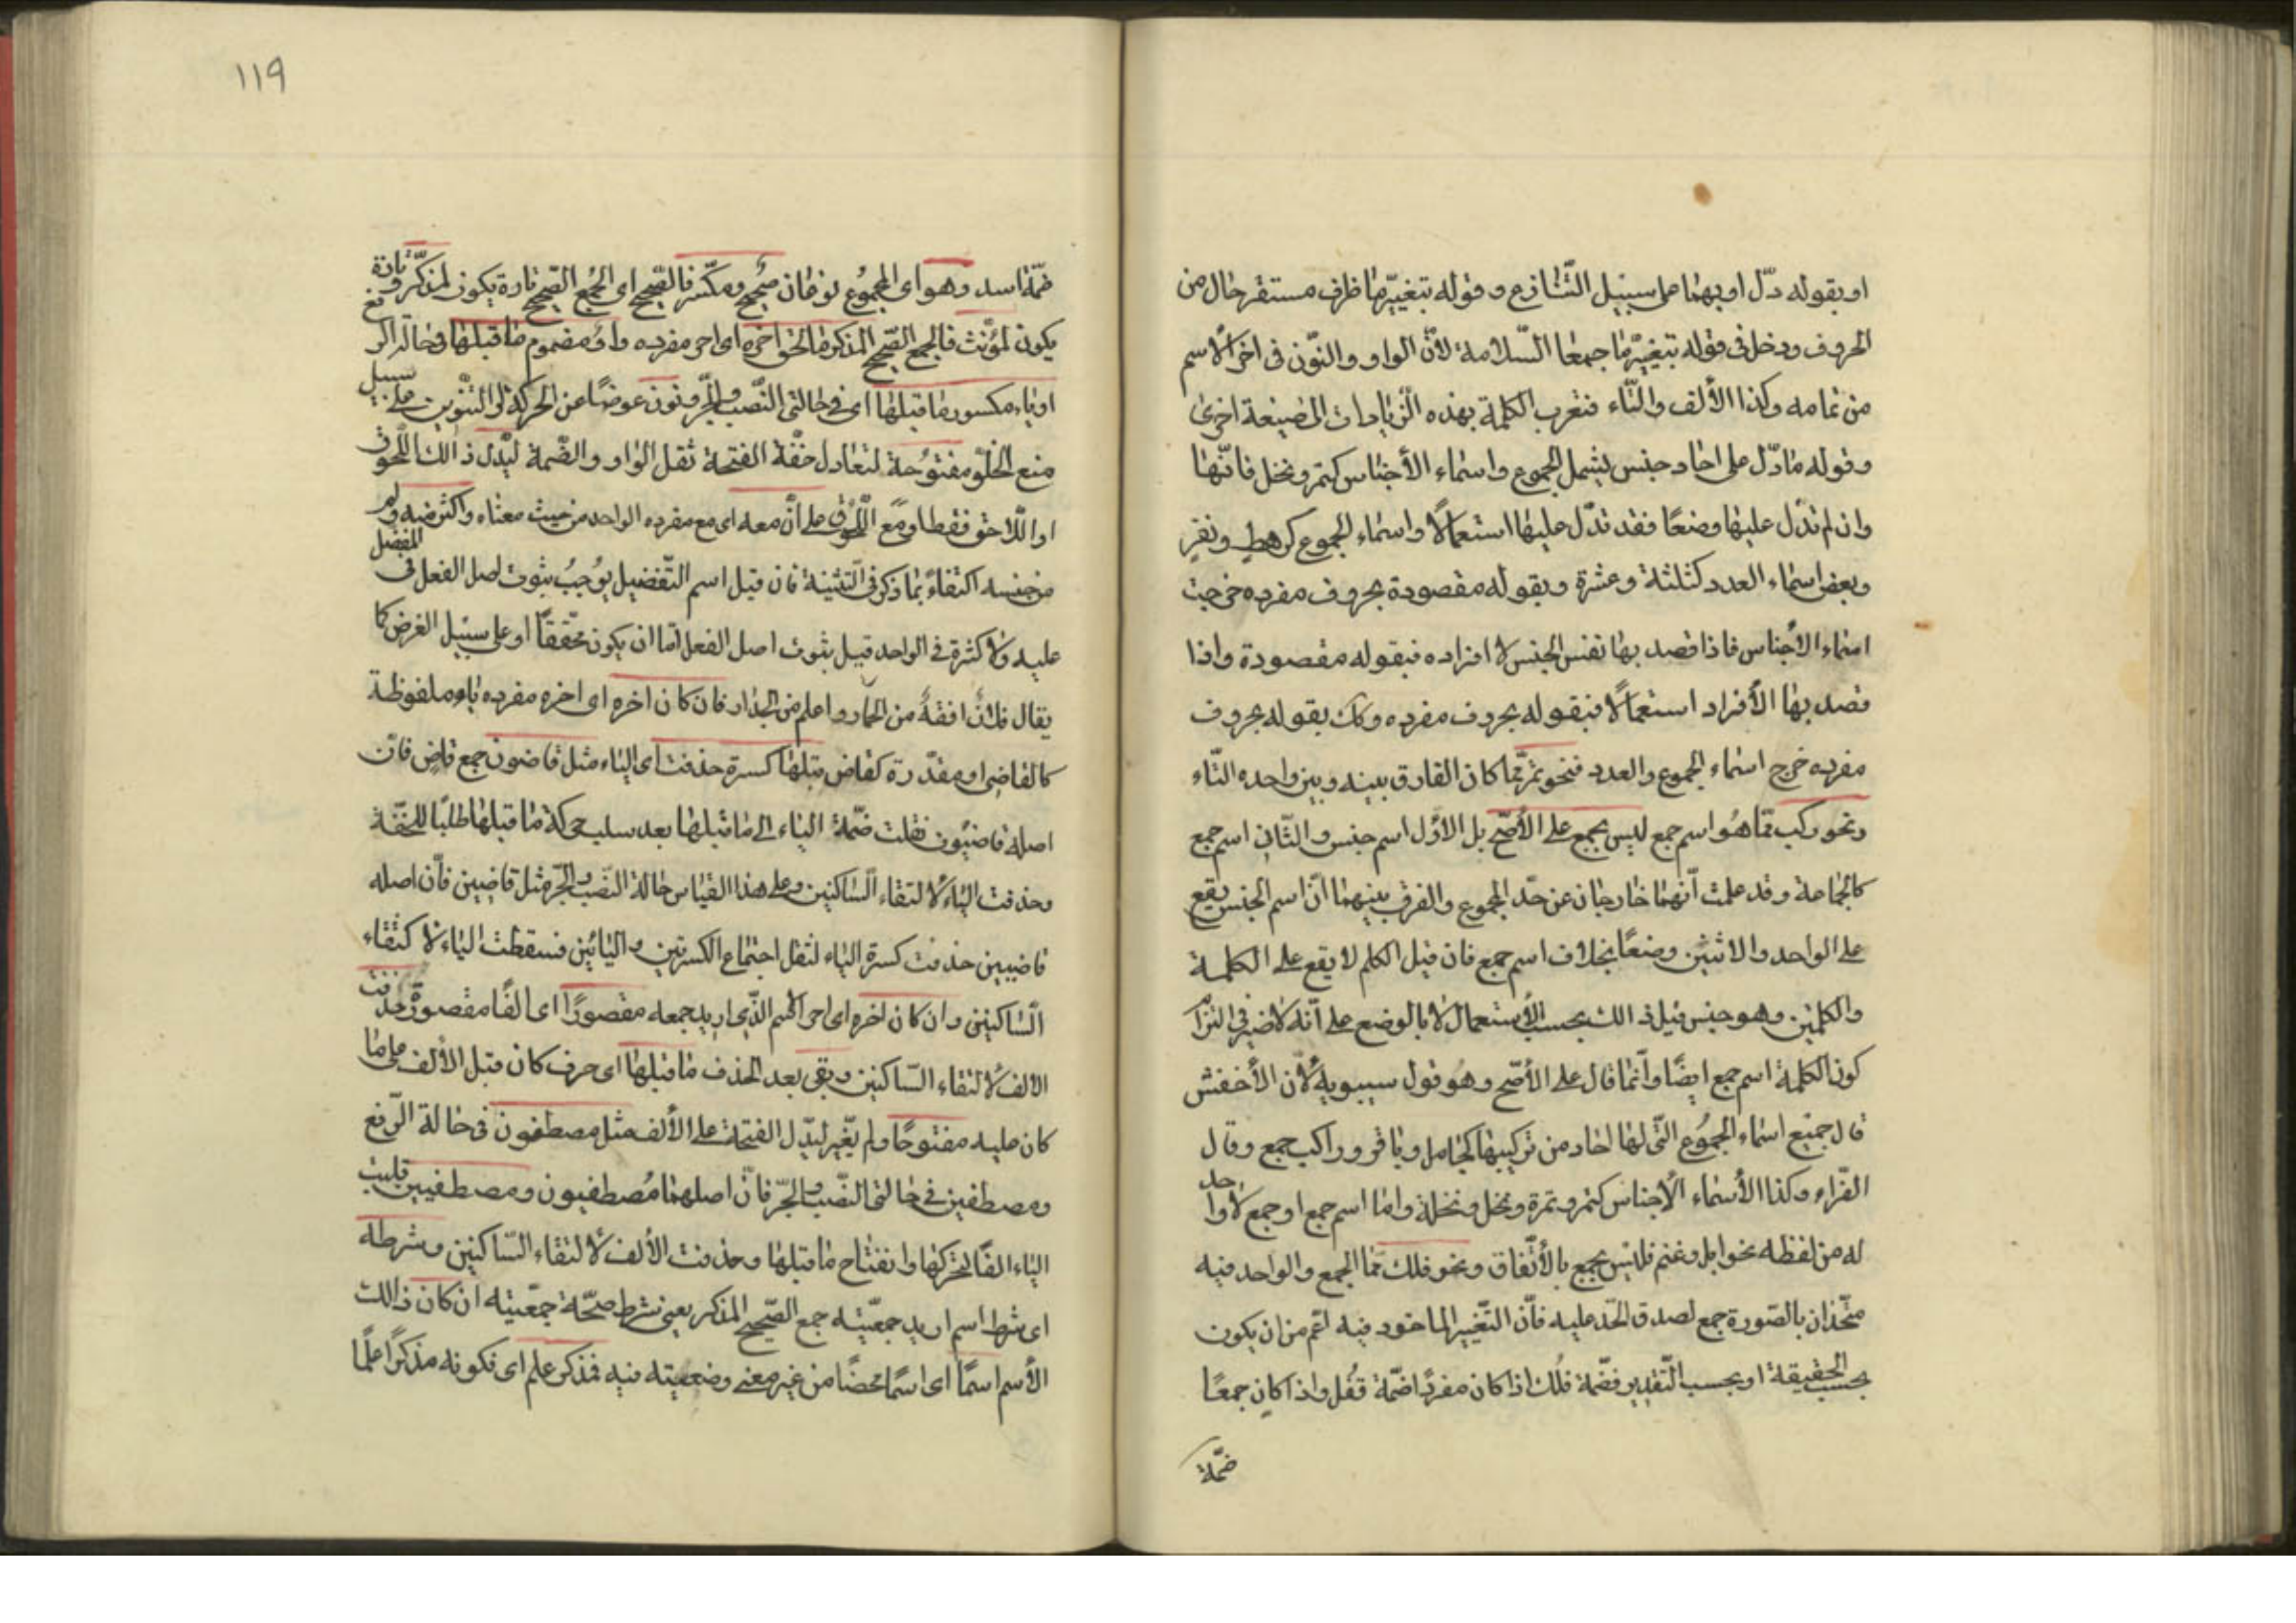 او بقوله دلّ او بهما على سبيل التّنازع وقوله بتغييرٍ مّا ظرف مستقر حال من
الحروف ودخل فى قوله بتغييرٍ مّا جمعا السّلامة لأنّ الواو والنّون فى اخر الاسم
من تمامه وكذا الألف والتّاء فتغرب الكلمة بهذه الزّيادات الى صيغة اخرى
وقوله ما دّل على احاد جنس يشمل المجموع واسماء الأجناس كتمر ونخل فانّها
وان لم تدّل عليها وضعًا فقد تدّل عليها استعمالًا واسماء الجموع كرهطٍ ونفرٍ
وبعض اسماء العدد كثلثة وعشرة وبقوله مقصودة بحروف مفرده خرجت
اسماء الاجناس فاذا قصد بها نفس الجنس لا افراده فبقوله مقصودة واذا
قصد بها الأفراد استعمالًا فبقوله بحروف مفرده وكك بقوله بحروف
مفرده خرج اسماء الجموع والعدد فنحو تمر ممّا كان الفارق بينه وبين واحده التّاء
ونحو ركب ممّا هُو اسم جمع ليس بجمع على الأصّح بل الأوّل اسم جنس والثّانى اسم جمع
كالجماعة وقد علمت انّهما خارجان عن حدّ المجموع والفرق بينهما انّ اسم الجنس يقع
على الواحد والاثنين وضعًا بخلاف اسم جمع فان قيل الكلم لا يقع على الكلمة
والكلمتين وهو جنس قيل ذالك بحسب الأستعمال لا بالوضع على انّه لا ضير فى التزام
كون الكلمة اسم جمع ايضًا وانّما قال على الأصّح وهُو قول سيبويه لأنّ الأخفش
قال جميع اسماء الجمُوع التّى لها احاد من تركيبها كجامل وباقر وراكب جمع وقال
الفرّاء وكذا الأسماء الأجناس كتمر وتمرة ونخل ونخلة وامّا اسم جمع او جمع لا واحد
له من لفظه نحو ابل وغنم فليس بجمع بالأتّفاق ونحو فلك ممّا الجمع والواحد فيه
متّحدان بالصّورة جمع لصدق الحّد عليه فانّ التّغيير الماخوذ فيه اعّم من ان يكون
بحسب الحقيقة او بحسب التّقدير فضّمة فلك اذا كان مفردًا ضمّة قفُل واذا كان جمعًا
ضمّة
١١٩
ضمّة اسد وهو اى المجموع نوعان صحيح ومكسّر فالصّحيح اى الجمع الصّحيح تارة يكون لمذكّر وتارة
يكون لمؤنّث فالجمع الصّحيح المذكر ما لحق اخره اى اخر مفرده واو مضموم ما قبلها فى حالة الرفع
او ياء مكسور ما قبلها اى فى حالتى النّصب والجّر ونون عوضًا عن الحركة او التّنوين على سبيل
منع الخلّو مفتوُحة لتعادل خفّة الفتحة ثقل الواو والضّمة ليّدل ذالك اللّحوق
او اللّاحق فقط او مع اللّحوق على انّ معه اى مع مفرده الواحد من حيث معناه واكثر منه ولم
من جنسه اكتفاءً بما ذكر فى التّثنية فان قيل اسم التّفضيل يوُجبُ ثبوت اصل الفعل فى المفضل
عليه ولا كثرة فى الواحد قيل ثبوت اصل الفعل امّا ان يكون محّققًا او على سبيل الفرض كما
يقال فلانٌ افقهُ من الحمار واعلم من الجدار فان كان اخره اى اخره مفرده ياء ملفوظة
كالقاضى او مقدّرة كقاض قبلها كسرة حذفت اى الياء مثل قاضون جمع قاضٍ فانّ
اصله قاضيُون نقلت ضمّة الياء الى ما قبلها بعد سلب حركة ما قبلها طلبًا للخفّة
وحذفت الياء لألتقاء السّاكنين وعلى هذا القياس حالة النّصب والجّر مثل قاضين فانّ اصله
قاضيين حذفت كسرة الياء لثقل اجتماع الكسرتين واليائين فسقطت الياء لالتقاء
السّاكنين وان كان اخره اى اخر الاسم الذّى اريد جمعه مقصورًا اى الفًا مقصورةً حذفت
الالف لألتقاء السّاكنين وبقى بعد الحذف ما قبلها اى حرف كان قبل الألف على ما
كان عليه مفتوحًا ولم يغّير ليّدل الفتحة على الألف مثل مصطفون فى حالة الرّفع
ومصطفين فى حالتى النّصب والجّر فانّ اصلهما مُصطفيون ومصطفيين قلبت
الياء الفًا لتحرّكها وانفتاح ما قبلها وحذفت الألف لألتقاء السّاكنين وشرطه
اى شرط اسم اريد جمعيّته جمع الصّحيح المذكر يعنى شرط صحّة جمعيّته ان كان ذالك
الأسم اسمًا اى اسمًا محضًا من غير معنى وصفيته فيه فمذكر علم اى فكونه مذكرًا علمًا